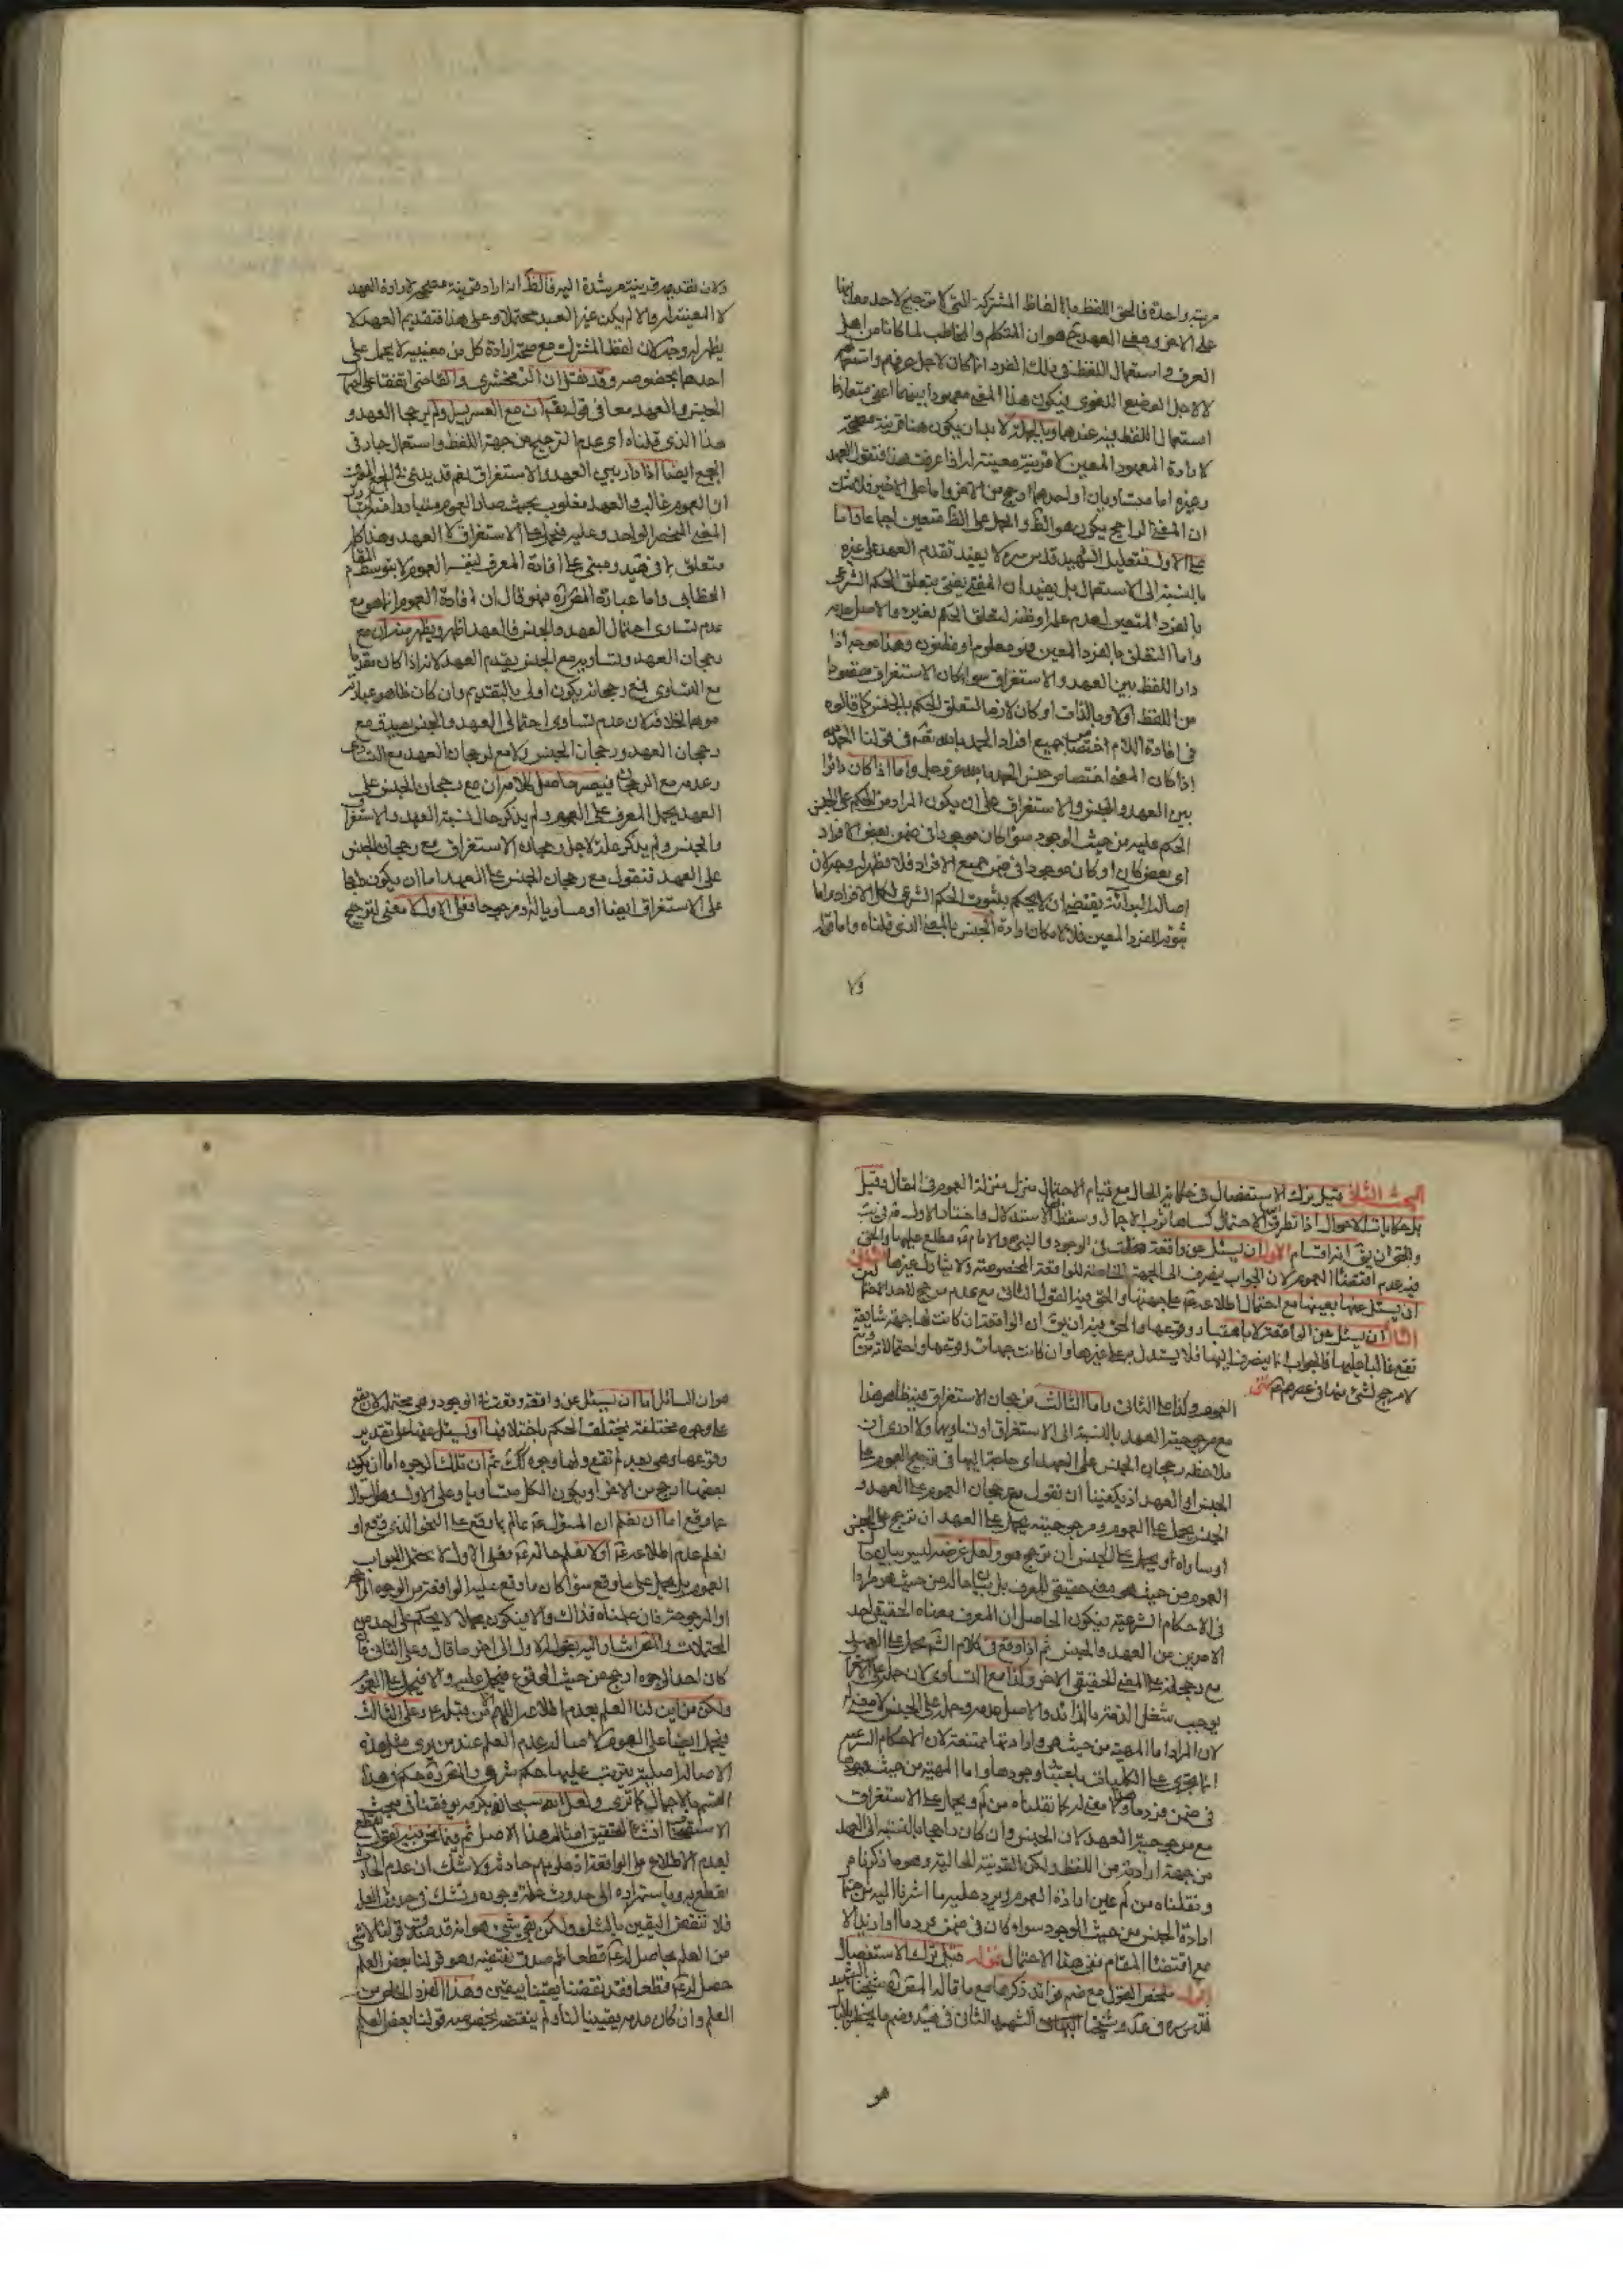 مرتبة واحدة فالحق اللفظ بالالفاظ المشتركة التى لا ترجيح لاحد معانيها
على الاخر وجه العهد هو ان المتكلم والمخاطب لما كانا من اهل
العرف واستعمال اللفظ فى ذلك الفرد انما كان لاجل عرفهم واستعماله
لاجل الوضع اللغوى فيكون هذا المعنى معهودا بينهما اعنى متعارفا
استعمال اللفظ فيه عندهما وبالجملة لا بد ان يكون هنا قرينة مصححة
لارادة المعهود المعين لا قرينة معينة له اذا عرفت هذا فنقول العهد
وغيره اما متساويان او احدهما ارجح من الاخر واما على الاخير فلا شك
ان المعنى الراجح يكون هو الظ والحمل على الظ متعين اجماعا واما
على الاول فتعليل الشهيد قدس سره لا يفيد تقدم العهد على غيره
بالنسبة الى الاستعمال بل يفيد ان المفتى يفتى بتعلق الحكم الشرعى
بالفرد المتعين لعدم علمه او ظنه لتعلق الحكم بغيره والاصل عدمه
واما التعلق بالفرد المعين فهو معلوم او مظنون وهذا موجه اذا
دار اللفظ بين العهد والاستغراق سواء كان الاستغراق مقصودا
من اللفظ اولا وبالذات او كان لازما لتعلق الحكم بالجنس كما قالوه
فى افادة اللام اختصاص جميع افراد الحمد بالله تعم فى قولنا الحمد لله
اذا كان المعنى اختصاص جنس الحمد بالله عز وجل واما اذا كان دائرا
بين العهد والجنس والاستغراق على ان يكون المراد من الحكم على الجنس
الحكم عليه من حيث الوجود سواء كان موجودا فى ضمن بعض الافراد
اى بعض كان او كان موجودا فى ضمن جميع الافراد فلا يظهر له وجه لان
اصالة البرائة يقتضى ان لا يحكم بثبوت الحكم الشرعى لكل الافراد واما
ثبوته للفرد المعين فلا لامكان ارادة الجنس بالمعنى الذى قلناه واما قوله
ولا
ولان تقديمه قرينة مرشدة اليه فالظ انه اراد قرينة مصححة لارادة العهد
لا المعينة له والا لم يكن غير العهد محتملا وعلى هذا فتقديم العهد لا
يظهر له وجه لان لفظ المشترك مع صحة ارادة كل من معنييه لا يحمل على
احدهما بخصوصه وقد نقل ان الزمخشرى والقاضى اتفقا على
الجنس والعهد معا فى قوله تعم ان مع العسر يسرا ولم يرجحا العهد و
هذا الذى قلناه اى عدم الترجيح من جهة اللفظ واستعمال جار فى
الجمع ايضا اذا دار بين العهد والاستغراق نعم قد يدعى فى
ان العموم غالب والعهد مغلوب بحيث صار العموم متبادرا منه
المعنى المنحصر الواحد وعليه فتحمل على الاستغراق لا العهد وهذا كله
متعلق بما فى هيد ومبنى على افادة المعرف لنفس العموم لا بتوسط المقام
الخطابى واما عبارة المقررة فهو قال ان افادة العموم انما هو مع
عدم تساوى احتمال العهد والجنس فالعهد اظهر ويظهر منه ان مع
رجحان العهد وتساويه مع الجنس يقدم العهد لانه اذا كان مقدما
مع التساوى فمع رجحانه يكون اولى بالتقديم وان كان ظاهر عبارته
موهما لخلافه لان عدم تساوى احتمالى العهد والجنس يصدق مع
رجحان العهد ورجحان الجنس
وعدمه مع الرجحان فيصير حاصل كلامه ان مع رجحان الجنس على
العهد يحمل المعرف على العموم ولم يذكر حال نسبة العهد والاستغراق
والجنس ولم يذكر علة لاجل رجحان الاستغراق مع رجحان الجنس
على العهد فنقول مع رجحان الجنس على العهد اما ان يكون راجحا
على الاستغراق ايضا او مساويا له او مرجوحا فعلى الاول لا معنى لترجيح
البحث الثانى قيل ترك الاستفصال فى حكاية الحال مع قيام الاحتمال ينزل منزلة العموم فى المقال وقيل
بل حكايات الاحوال اذا تطرق اليها الاحتمال كساها ثوب الاجمال وسقط بها الاستدلال واختار الاول
والحق ان يق انه اقسام الاول ان يسئل عن واقعة دخلت فى الوجود والنبى ص والامام ع مطلع عليها والحق
فيه عدم اقتضاء العموم لان الجواب ينصرف الى الجهة الخاصة للواقعة المخصوصة ولا يتناول غيرها الثانى
ان يسئل عنها بعينها مع احتمال اطلاعه ع على جهتها والحق فيه القول الثانى مع عدم مرجح لاحد
الثالث ان يسئل عن الواقعة لا باعتبار وقوعها والحق فيه ان يق ان الواقعة ان كانت لها جهة شايعة
تقع غالبا عليها فالجواب انما ينصرف اليها فلا يستدل به على غيرها وان كانت جهات وقوعها واحتمالاته متساوية
لا مرجح لشئ منها فى عصرهم ع
العموم وكذا على الثانى واما الثالث من رجحان الاستغراق فيه ظاهر هذا
مع مرجوحية العهد بالنسبة الى الاستغراق او تساويهما ولا ادرى ان
ملاحظة رجحان الجنس على العهد اى حاجة اليها فى ترجيح العموم على
الجنس او العهد اذ يكفينا ان نقول مع رجحان العموم على العهد و
الجنس يحمل على العموم ومع مرجوحيته يحمل على العهد ان ترجح على الجنس
او ساواه او يحمل على الجنس ان ترجح هو ولعل غرضه ليس بيان
العموم من حيث هو معنى حقيقى للمعرف بل بيان حاله من حيث هو مراد
فى الاحكام الشرعية فيكون الحاصل ان المعرف معناه الحقيقى احد
الامرين من العهد والجنس ثم اذا وقع فى كلام الش يحمل على العهد
مع رجحانه على المعنى الحقيقى الاخر وكذا مع التساوى لان حمله على
يوجب شغل الذمة بالزائد والاصل عدمه وحمله على الجنس لا معنى له
لان المراد اما المهية من حيث هى وارادتها ممتنعة لان الاحكام الشرعية
انما تجرى على الكليات باعتبار وجودها واما المهية من حيث وجودها
فى ضمن فرد ما ولا معنى له كما نقلناه من قم ويحمل على الاستغراق
مع مرجوحية العهد لان الجنس وان كان راجحا بالنسبة الى العهد
من جهة ارادته من اللفظ ولكن القرينة الحالية وهو ما ذكرناه
ونقلناه من قم عين ارادة العموم ويرد عليه ما اشرنا اليه من جهة
ارادة الجنس من حيث الوجود سواء كان فى ضمن فرد ما او ازيد الا
مع اقتضاء المقام نفى هذا الاحتمال قوله قيل ترك الاستفصال
اقول ملخص القول مع ضم فوائد ذكرها مع ما قاله المقررة شيخنا الشهيد
قدس سره فى عد وشيخنا الشهيد الثانى فى هيد وضم ما يخطر بالبال
هو
هو ان السائل اما ان يسئل عن واقعة وقعت فى الوجود وهى محتملة لان تقع
على وجوه مختلفة يختلف الحكم باختلافها او يسئل عنها على تقدير
وقوعها وهى بعد لم تقع ولها وجوه كك ثم ان تلك الوجوه اما ان يكون
بعضها ارجح من الاخر او يكون الكل متساويا وعلى الاول وهو السؤال
عما وقع اما ان نعلم ان المسئول عنه عالم بما وقع على النحو الذى وقع او
نعلم عدم اطلاعه ع او لا نعلم حاله ع فعلى الاول لا يحتمل الجواب
العموم بل يحمل على ما وقع سواء كان ما وقع عليه الواقعة من الوجوه الراجحة
او المرجوحة فان علمناه فذاك والا فيكون مجملا لا يحكم على احد من
المحتملات والتحر اشار اليه بقوله الاول الى اخر ما قال وعلى الثانى فان
كان احد الوجوه ارجح من حيث الوقوع فيحمل عليه والا فيحمل على العموم
ولكن من اين لنا العلم بعدم اطلاعه اللهم الا من قبله ع وعلى الثالث
فيحمل ايضا على العموم لاصالة عدم العلم عند من يرى مثل هذه
الاصالة اصلا يترتب عليها حكم شرعى والتحر ره حكم فى هذا
القسم بالاجمال كما ترى ولعل الله سبحانه بكرمه يوفقنا فى مبحث
الاستصحاب انشاء لتحقيق امثال هذا الاصل ثم فيما نحن فيه نقول نقطع
بعدم الاطلاع على الواقعة اذ علومهم حادثة ولا شك ان عدم الحادث
نقطع به وباستمراره الى حدوث علة وجوده ونشك فى حدوث العلة
فلا تنقض اليقين بالشك ولكن بقى شئ هو انه قد صدق قولنا لا شئ
من العلم بحاصل له ع قطعا ثم صدق نقيضه وهو قولنا بعض العلم
حصل له ع قطعا فقد نقضنا يقيننا بيقين وهذا الفرد الخاص من
العلم وان كان عدمه يقينيا لنا ولم ينتقض بخصوصه قولنا بعض العلم